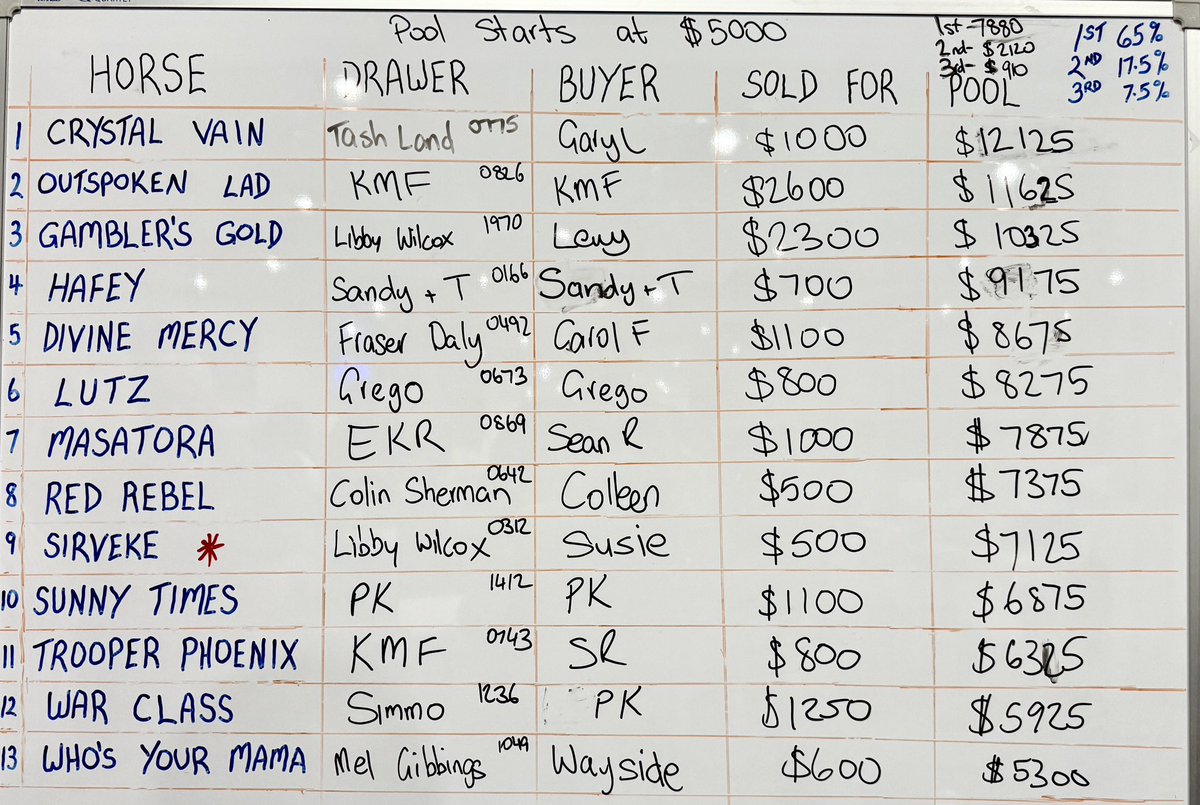 Pool Starts at $5000
1st-7880
2nd- $2120
3rd- $910
1ST 65%
2ND 17.5%
3RD 7.5%
HORSE DRAWER BUYER SOLD FOR POOL
1 CRYSTAL VAIN Tash Land 0775 Gary L $1000 $12125
2 OUTSPOKEN LAD KMF 0826 KMF $2600 $11625
3 GAMBLER'S GOLD Libby Wilcox 1970 Lewy $2300 $10325
4 HAFEY Sandy + T 0166 Sandy + T $700 $9175
5 DIVINE MERCY Fraser Daly 0492 Carol F $1100 $8675
6 LUTZ Grego 0673 Grego $800 $8275
7 MASATORA EKR 0869 Sean R $1000 $7875
8 RED REBEL Colin Sherman 0642 Colleen $500 $7375
9 SIRVEKE * Libby Wilcox 0312 Susie $500 $7125
10 SUNNY TIMES PK 1412 PK $1100 $6875
11 TROOPER PHOENIX KMF 0743 SR $800 $6325
12 WAR CLASS Simmo 1236 PK $1250 $5925
13 WHO'S YOUR MAMA Mel Gibbings 1049 Wayside $600 $5300